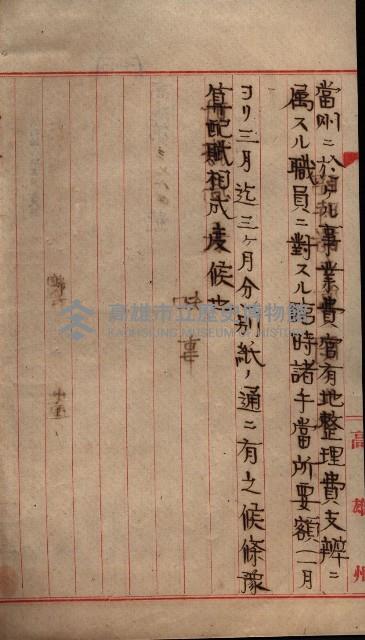 當州ニ於ケル事業費官有地整理費支辨ニ
属スル職員ニ對スル臨時諸手當所要額(一月
ヨリ三月迄三ヶ月分別紙ノ通ニ有之候條豫
算配賦相成度候也
高雄州
高雄市立歷史博物館
KAOHSIUNG MUSEUM OF HISTORY